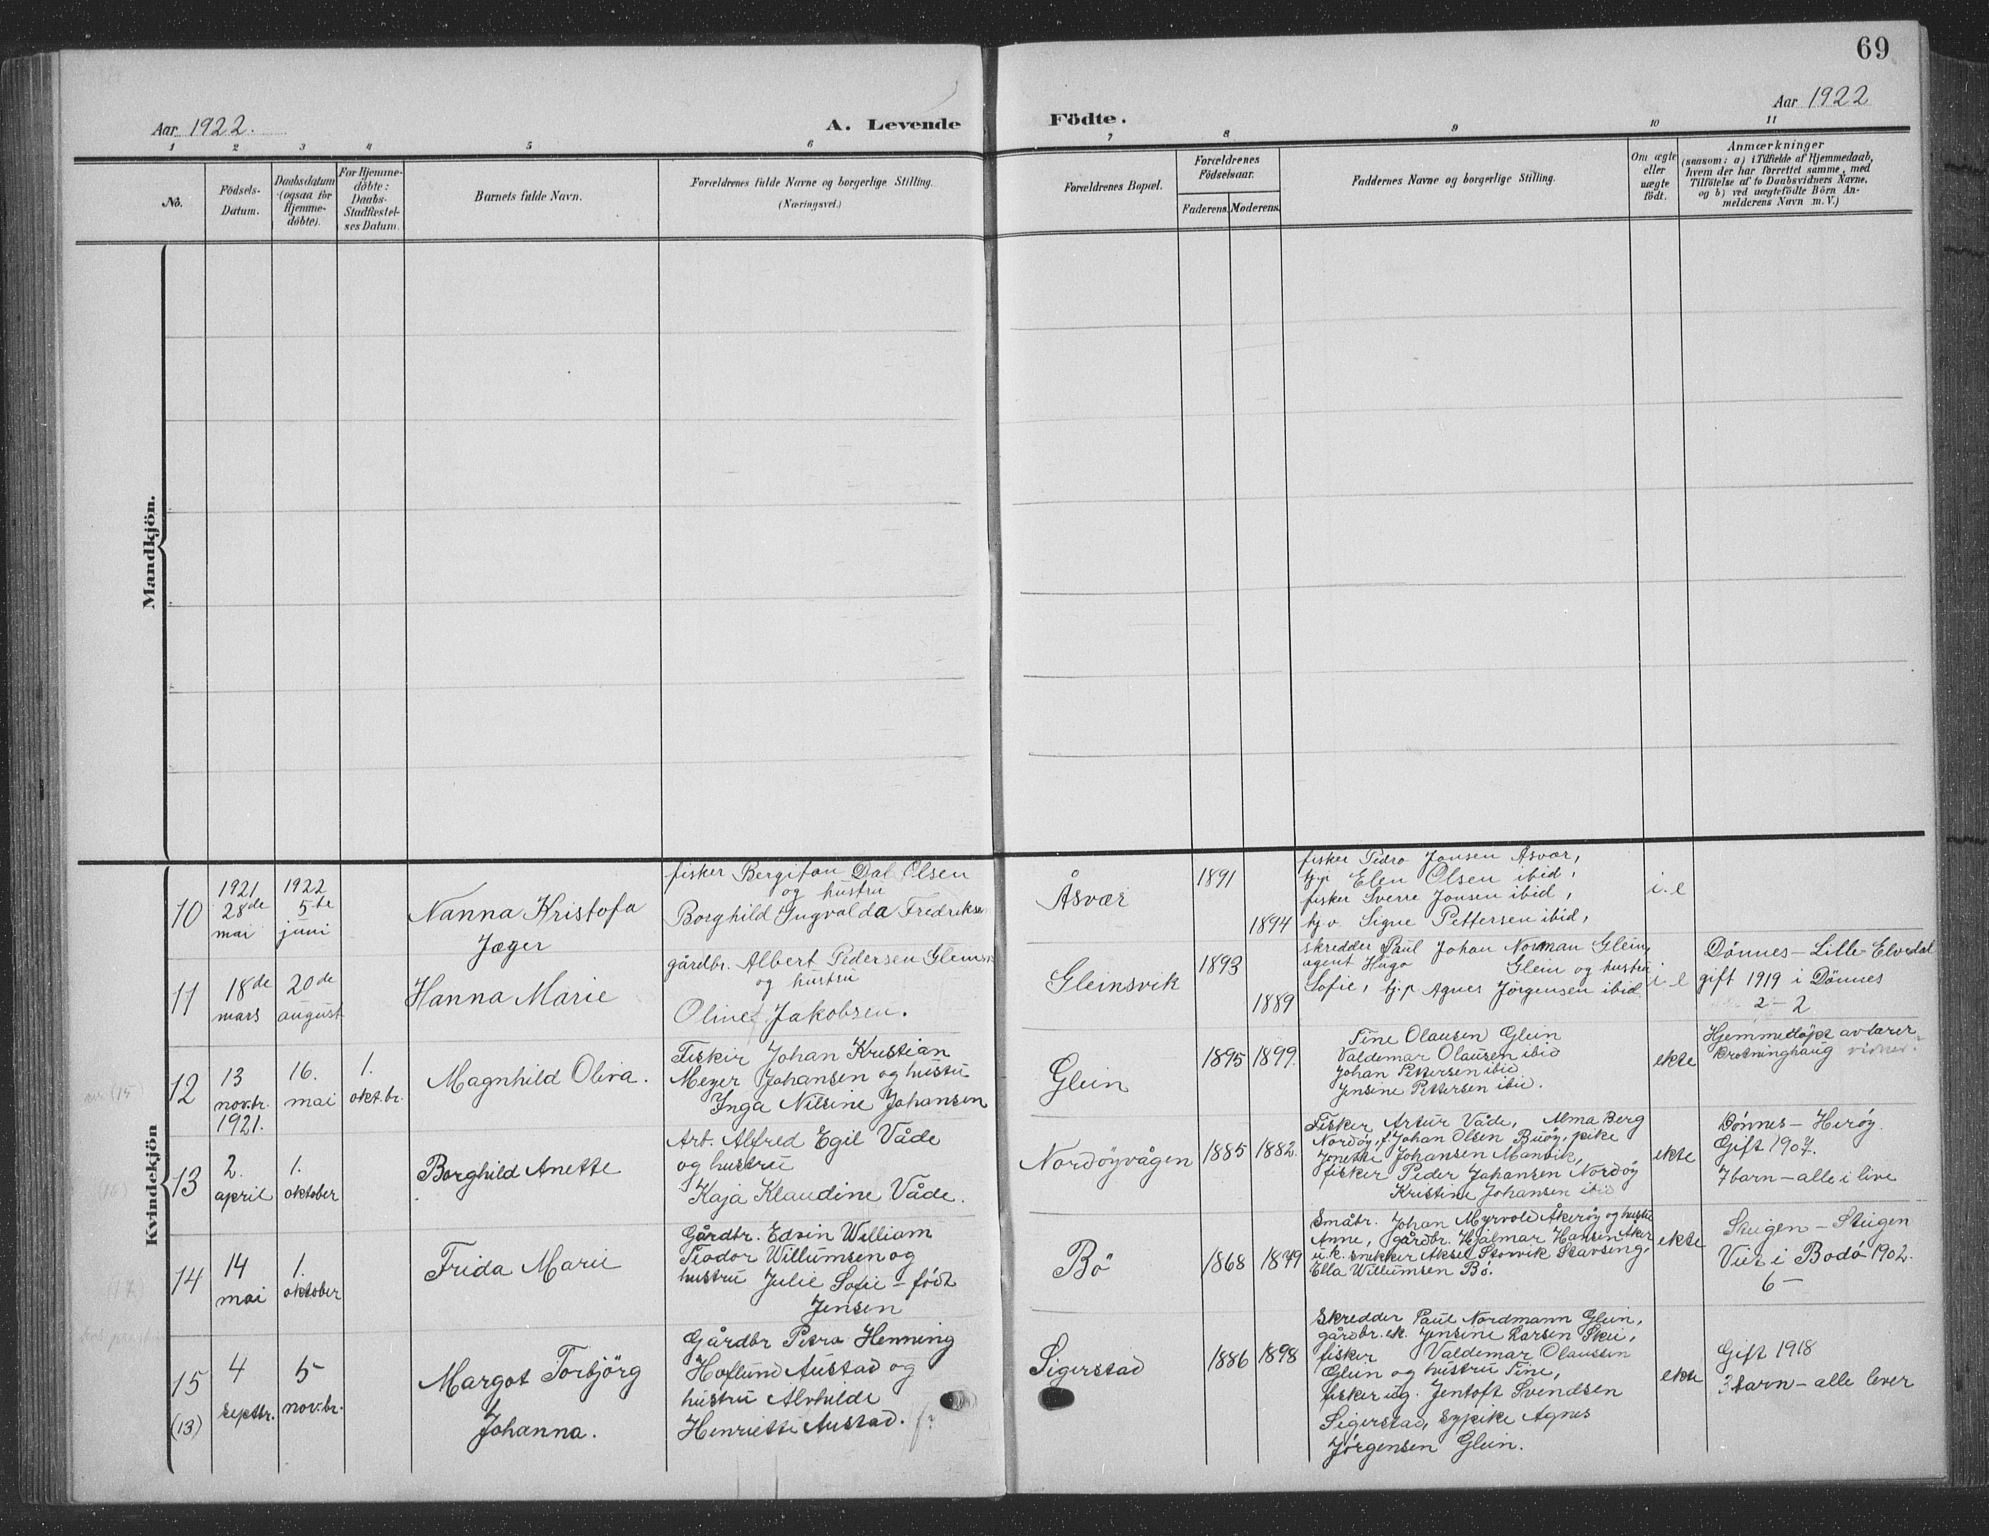 69
Aar 1922.
A. Levende
Födte.
Aar 1922
1 2 3 4 5 6 7 8 9 10 11
No.
Födsels-
Datum.
Daabsdatum
(ogsaa for
Hjemme-
döbte).
For Hjemme-
döbte:
Daabs-
Stadfæstel-
ses Datum.
Barnets fulde Navn.
Forældrenes fulde Navne og borgerlige Stilling.
(Næringsvei.)
Forældrenes Bopæl.
Forældrenes
Födselsaar.
Faderens.
Moderens.
Faddernes Navne og borgerlige Stilling.
Om ægte
eller
uægte
født.
Anmærkninger
(saasom: a) i Tilfælde af Hjemmedaab,
hvem der har forrettet samme, med
Tilföielse af to Daabsvidners Navne,
og b) ved uægtefödte Börn An-
melderens Navn m. V.)
Mandkjön.
Kvindekjön
10
1921
28de
mai
1922
5te
juni
Nanna Kristofa
Jæger
fisker Bergiton Dal Olsen
og hustru
Borghild Ingvalda Fredrikse
Åsvær
1891
1894
fisker Pedro Jonsen Åsvær,
Elen Olsen ibid,
fisker Sverre Jonsen ibid,
Signe Pettersen ibid,
i. e
11
18de
mars
20de
august
Hanna Marie
gårdbr. Albert Pedersen Gleinsv
og hustru
Oline Jakobsen.
Gleinsvik
1893
1889
skredder Paul Johan Norman Glein,
agent Hugo Glein og hustru
Sofie, Agnes Jørgensen ibid.
i e
Dønnes – Lille-Elvedal
gift 1919 i Dønnes
2 – 2
12
13
nov.br.
1921.
16.
mai
1.
okt.br.
Magnhild Oliva.
Fisker Johan Kristian
Meyer Johansen og hustru
Inga Nilsine Johansen
Glein
1895
1899.
Tine Olausen Glein
Valdemar Olausen ibid
Johan Pettersen ibid
Jensine Pettersen ibid.
ekte
Hjemmedøpt av lærer
13
2.
april
1.
oktober
Borghild Anette
Arb. Alfred Egil Våde
og hustru
Kaja Klaudine Våde.
Nordøyvågen
1885
1882.
Fisker Artur Våde, Alma Berg
Nordøy, f. Johan Olsen Buøy, pike
Jonethe Johansen Manvik,
fisker Peder Johansen Nordøy
Kristine Johansen ibid
ekte
Dønnes – Herøy.
Gift 1907.
7 barn – alle i live
14
14
mai
1.
oktober
Frida Marie
Gårdbr. Edvin William
Teodor Willumsen og
hustru Julie Sofie – født
Jensen
Bø
1868
1879
Småbr. Johan Myrvold Åkerøy og hustru
Anne, gårdbr. Hjalmar Hansen Åker
u.k. snekker Aksel Storvik Stavseng,
Ella Willumsen Bø.
ekte
Skugen – Steigen
Viet i Bodø 1902.
6 –
15
(13)
4
septbr.
5
nov.br.
Margot Torbjörg
Johanna.
Gårdbr Petra Henning
Hoflund Austad og
hustru Alvhilde
Henriette Austad. f?
Sigerstad
1886
1898
Skredder Paul Nordmann Glein,
gårdbr. ek. Jensine Larsen Skei,
fisker Valdemar Olaussen
Glein og hustru Tine,
fisker ug. Jentoft Svendsen
Sigerstad, sypike Agnes
Jørgensen Glein.
ekte
Gift 1918
3 barn – alle lever